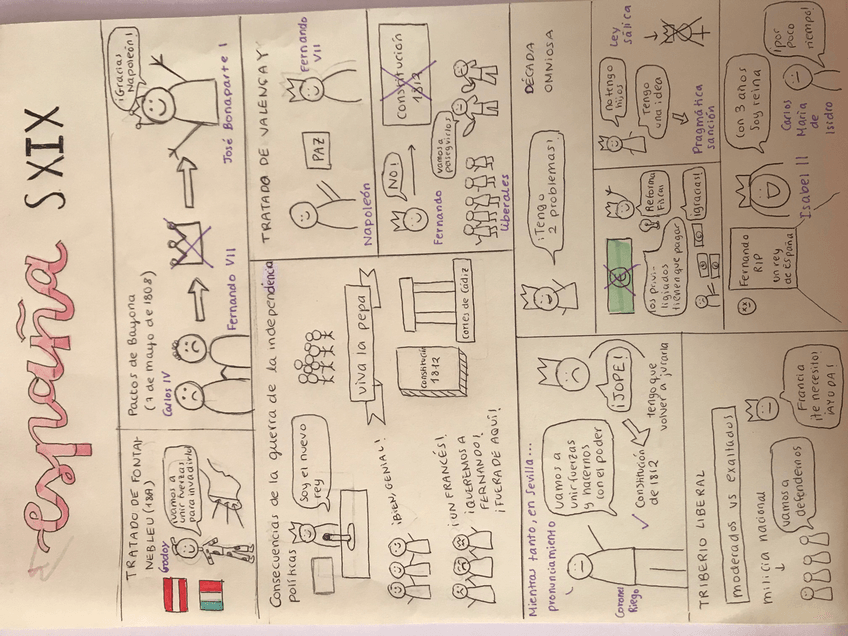 españa SXIX
TRATADO DE FONTAI-
NEBLEU (1807)
Godoy
¡vamos a
unir fuerzas
para invadirlo!
Pactos de Bayona
(7 de mayo de 1808)
Carlos IV
Fernando VII
¡Gracias
Napoleón!
José Bonaparte I
Consecuencias de la guerra de la independencia
políticas
Soy el nuevo
rey
viva la pepa
¡BIEN, GENIAL!
¡UN FRANCÉS!
¡QUEREMOS A
FERNANDO!
¡FUERA DE AQUÍ!
constitución
1812
Cortes de Cádiz
TRATADO DE VALENÇAY
PAZ
Napoleón
Fernando
VII
¡NO!
Fernando
constitución
1812
vamos a
perseguirlos
liberales
Mientras tanto, en Sevilla...
pronunciamiento
vamos a
unir fuerzas
y hacernos
con el poder
Coronel
Riego
¡JOPE!
✓ Constitución
de 1812
tengo que
volver a jurarla
¡Tengo
2 problemas!
DÉCADA
OMNIOSA
Reforma
Fiscal
los privi-
ligiados
tienen que pagar
¡gracias!
no tengo
hijos
Tengo
una idea
Ley
sálica
Pragmática
sanción
TRIBERIO LIBERAL
moderados vs exaltados
milicia nacional
vamos a
defendernos
Francia
¡te necesito!
¡AYUDA!
Fernando
RIP
un rey
de España
Isabel II
con 3 años
soy reina
Carlos
María
de
Isidro
¡por
poco
tiempo!